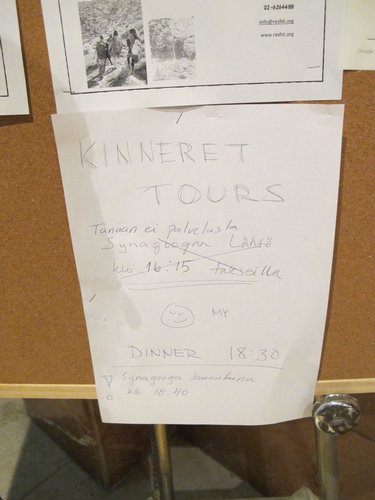 02-6264488
info@reshit.org
www.reshit.org
KINNERET
TOURS
Tänään ei palvelusta
Synagoogan Lähtö
klo 16:15 takseilla
MY
DINNER 18:30
Synagooga
klo 18:40